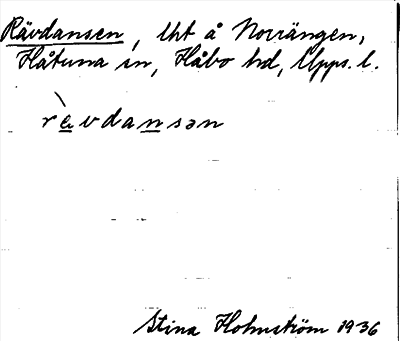 Rävdansen, Uht å Norrängen,
Håtuna sn, Håbo hd, Upps. l.
rὲvdansən
Stina Holmström 1936